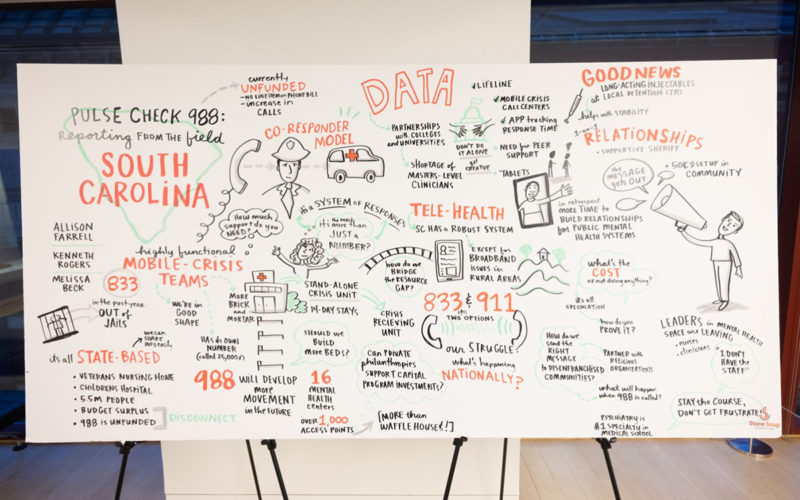 PULSE CHECK 988:
Reporting FROM the field
SOUTH
CAROLINA
ALLISON
FARRELL
KENNETH
ROGERS
MELISSA
BECK
currently
UNFUNDED
- increase in
CALLS
CO-RESPONDER
MODEL
How much
support do you
NEED?
highly functional
MOBILE-CRISIS
TEAMS
833
in the past year:
OUT of
JAILS
we can
SHARE
we're in
GOOD
SHAPE
Has its own
NUMBER
(called 25,000x)
it's all STATE-BASED
• VETERANS NURSING HOME
• CHILDRENS HOSPITAL
• 5.5M PEOPLE
• BUDGET SURPLUS
• 988 IS UNFUNDED
DISCONNECT
988 WILL DEVELOP
more
MOVEMENT
in the FUTURE
MORE
BRICK
and
MORTAR
it's a SYSTEM of RESPONSES
it's MORE THAN
JUST A
NUMBER?
STAND-ALONE
CRISIS UNIT
14-DAY STAYS
SHOULD WE
BUILD
more BEDS?
16
MENTAL
HEALTH
centers
OVER 1,000
ACCESS POINTS
[MORE than
WAFFLE HOUSE!]
DATA
PARTNERSHIPS
with COLLEGES
and UNIVERSITIES
SHORTAGE OF
MASTERS-LEVEL
CLINICIANS
LIFELINE
MOBILE CRISIS
CALL CENTERS
APP tracking
RESPONSE TIME
DON'T DO
IT ALONE
get
CREATIVE
NEED for PEER
SUPPORT
TABLETS
TELE-HEALTH
SC HAS A ROBUST SYSTEM
EXCEPT for
BROADBAND
issues in
RURAL AREAS
how do we
BRIDGE
the RESOURCE
GAP?
833 & 911
TWO OPTIONS
CRISIS
RECIEVING
UNIT
our STRUGGLE
what's happening
NATIONALLY?
can PRIVATE
philanthropies
SUPPORT CAPITAL
PROGRAM INVESTMENTS?
GOOD NEWS
LONG-ACTING INJECTABLES
at LOCAL DETENTION CTRS
helps with STABILITY
RELATIONSHIPS
- SUPPORTIVE SHERIFF
the
MESSAGE
gets OUT
SETUP in
COMMUNITY
in retrospect
MORE TIME to
BUILD RELATIONSHIPS
for PUBLIC MENTAL
HEALTH SYSTEMS
what's the
COST
of not doing anything?
it's all
SPECULATION
how do you
PROVE IT?
How do we
send the
RIGHT
MESSAGE
to DISENFRANCHISED
COMMUNITIES?
PARTNER with
RELIGIOUS
ORGANIZATIONS
what will happen
when 988 is called?
PSYCHIATRY is
#1 SPECIALTY in
MEDICAL SCHOOL
LEADERS in MENTAL HEALTH
SPACE are LEAVING
- nurses
- clinicians
"I DON'T
HAVE the
STAFF"
STAY the COURSE,
DON'T GET FRUSTRATED
Stone Soup
CREATIVE